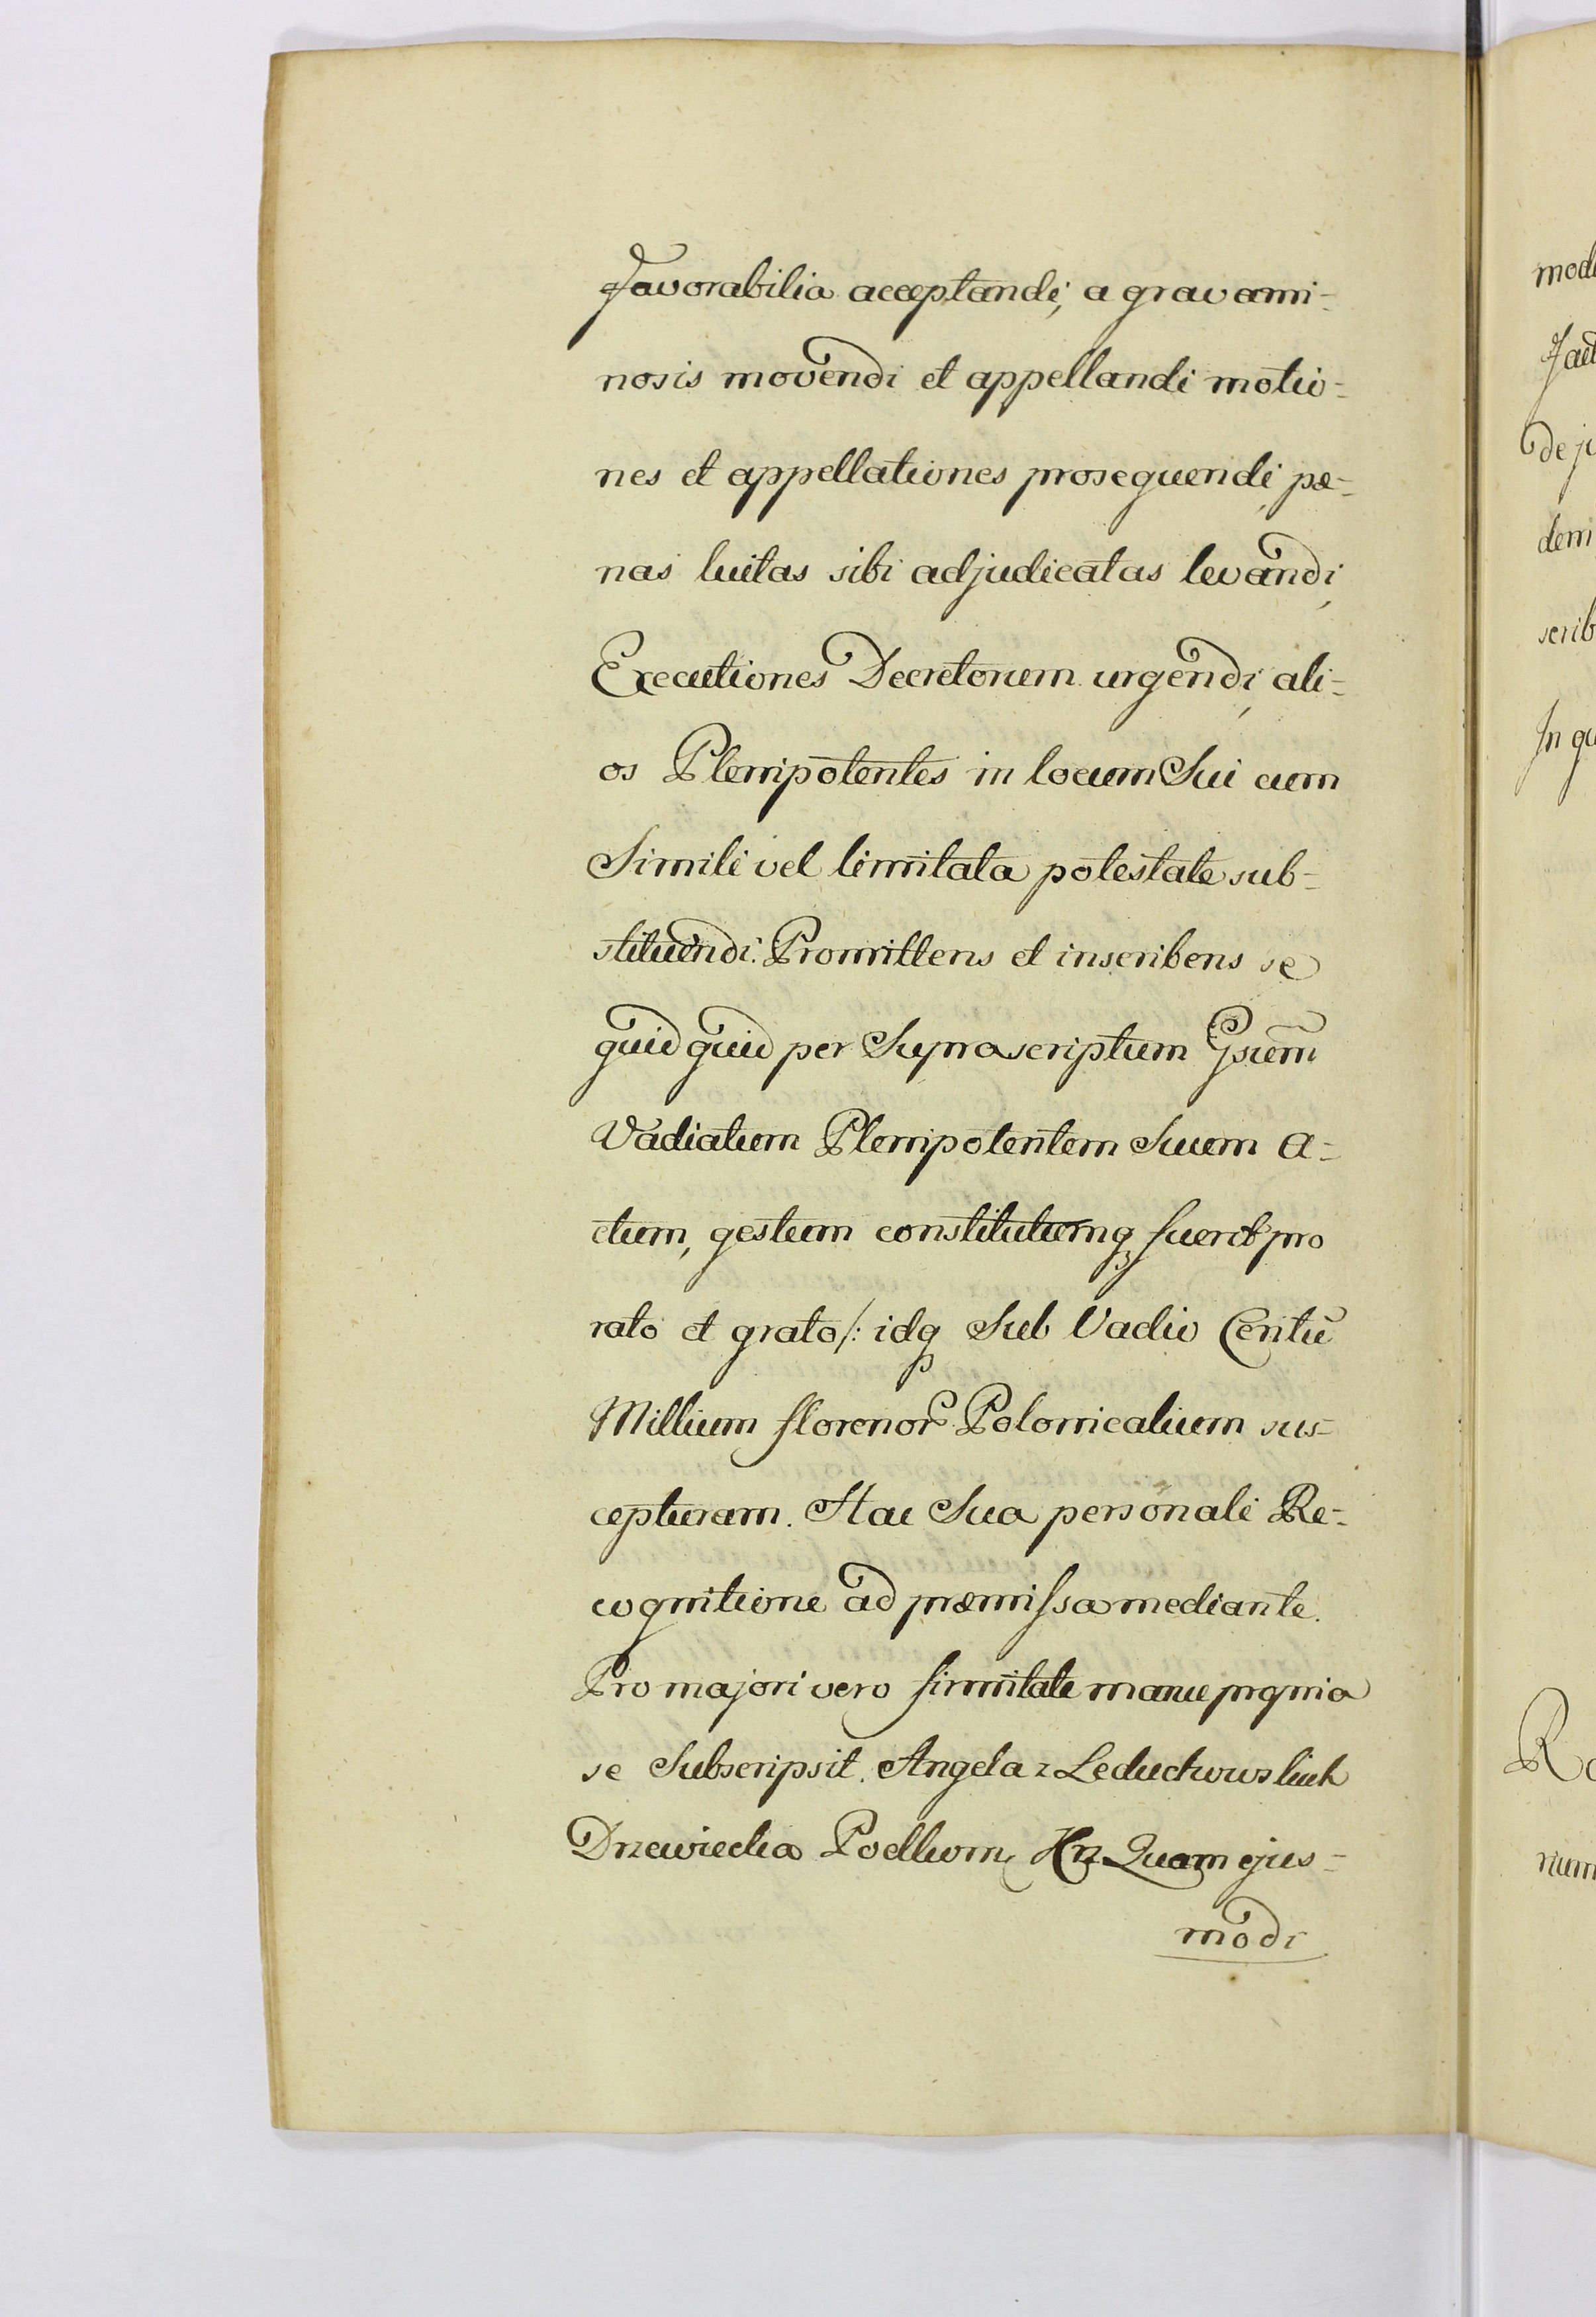 favorabilia acceptandi, a gravami=
nosis movendi et appellandi motio=
nes et appellationes prosequendi, pæ=
nas luitas sibi adjudicatas levandi,
Executiones Decretorum urgendi, ali=
os Plenipotentes in locum Sui cum
Simili vel limitata potestate sub=
stituendi. Promittens et inscribens se
quid quid per Suprascriptum Gsum
Vadiatum Plenipotentem Suum a=
ctum, gestum constitutumq fuerit pro
rato et grato /: idq Sub Vadio Centū
Millium florenor Polonicalium sus=
cepturam. Hac Sua personali Re=
cognitione ad præmissa mediante.
Pro majori vero firmitate manu propria
se Subscripsit. Angela z Leduchowskich
Drzewiecka Quam ejus=
modi
mod
de ju
dem
scrib
In qu
num